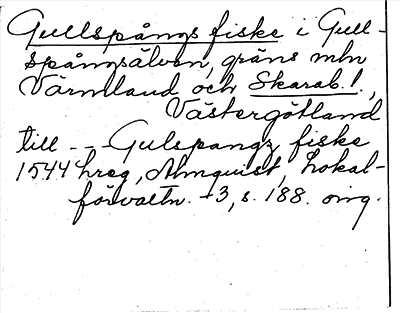 Gullspångs fiske i Gull-
spångsälven, gräns mln
Värmland och Skarab. l.,
Västergötland
till - - - Gulspangz fiske
1544 hreg, Almquist, Lokal-
förvaltn. +3, s. 188. orig.